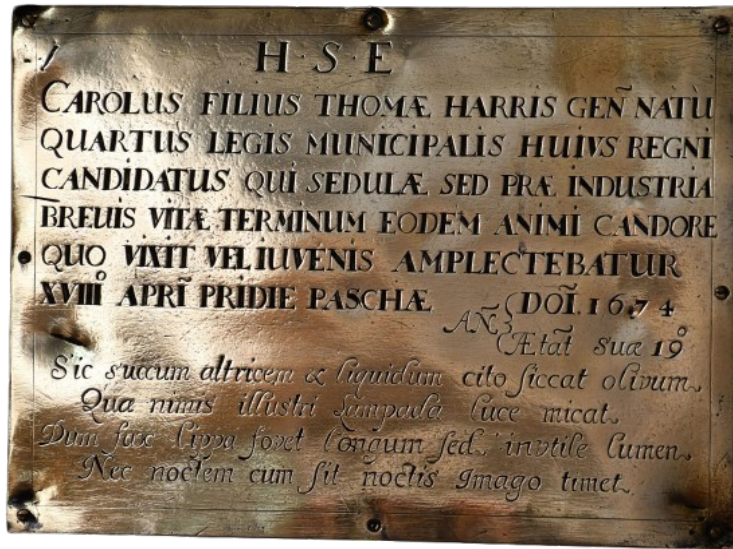 H·S·E
CAROLUS FILIUS THOMÆ HARRIS GEÑ NATU
QUARTUS LEGIS MUNICIPALIS HUIVS REGNI
CANDIDATUS QUI SEDULÆ SED PRÆ INDUSTRIA
BREUIS VITÆ TERMINUM EODEM ANIMI CANDORE
QUO VIXIT VEL IUVENIS AMPLECTEBATUR
XVIIIº APRĨ PRIDIE PASCHÆ
AÑ { DOĨ. 1674
Ætat̃ Suæ 19º
Sic succum altricem & liquidum cito siccat olivum
Quæ nimis illustri Lampada luce micat.
Dum fax lippa fovet longum sed invtile lumen
Nec noctem cum sit noctis Imago timet